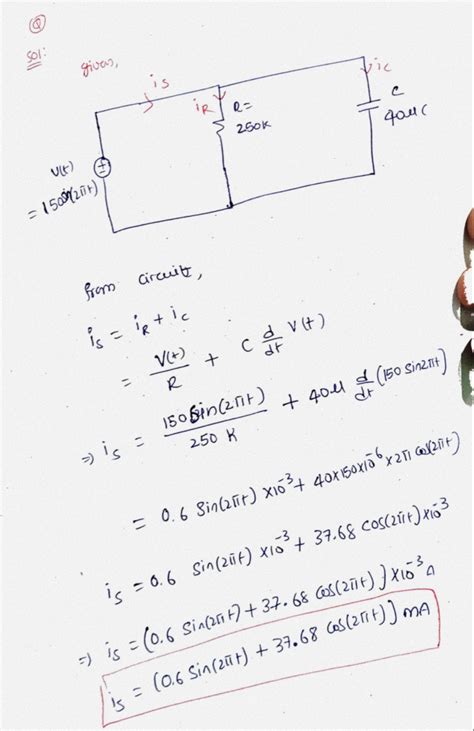 Q
Sol:
given,
is
iR
R=
250K
iC
C
40µC
V(t)
= 150sin(2πt)
from circuit,
is = iR + ic
= V(t)/R + C d/dt V(t)
⇒ is = 150 Sin(2πt)/250 K + 40µ d/dt (150 sin2πt)
= 0.6 Sin(2πt) ×10⁻³ + 40×150×10⁻⁶ × 2π cos(2πt)
is = 0.6 Sin(2πt) ×10⁻³ + 37.68 cos(2πt)×10⁻³
⇒ is = (0.6 Sin(2πt) + 37.68 cos(2πt)] ×10⁻³ A
is = (0.6 Sin(2πt) + 37.68 cos(2πt)] mA